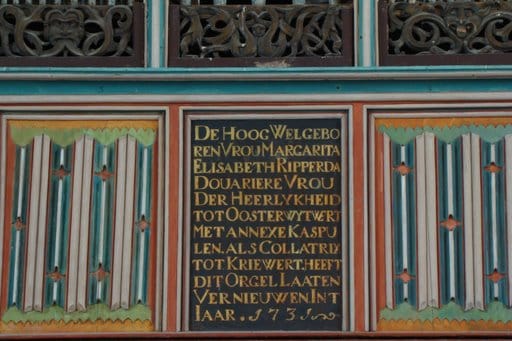 DE HOOG WELGEBO
REN VROU MARGARITA
ELISABETH RIPPERDA
DOUARIERE VROU
DER HEERLYKHEID
TOT OOSTERWYTWERT
MET ANNEXE KASPU
LEN. ALS COLLATRIX
TOT KRIEWERT. HEEFT
DIT ORGEL LAATEN
VERNIEUWEN. INT
IAAR. 1731